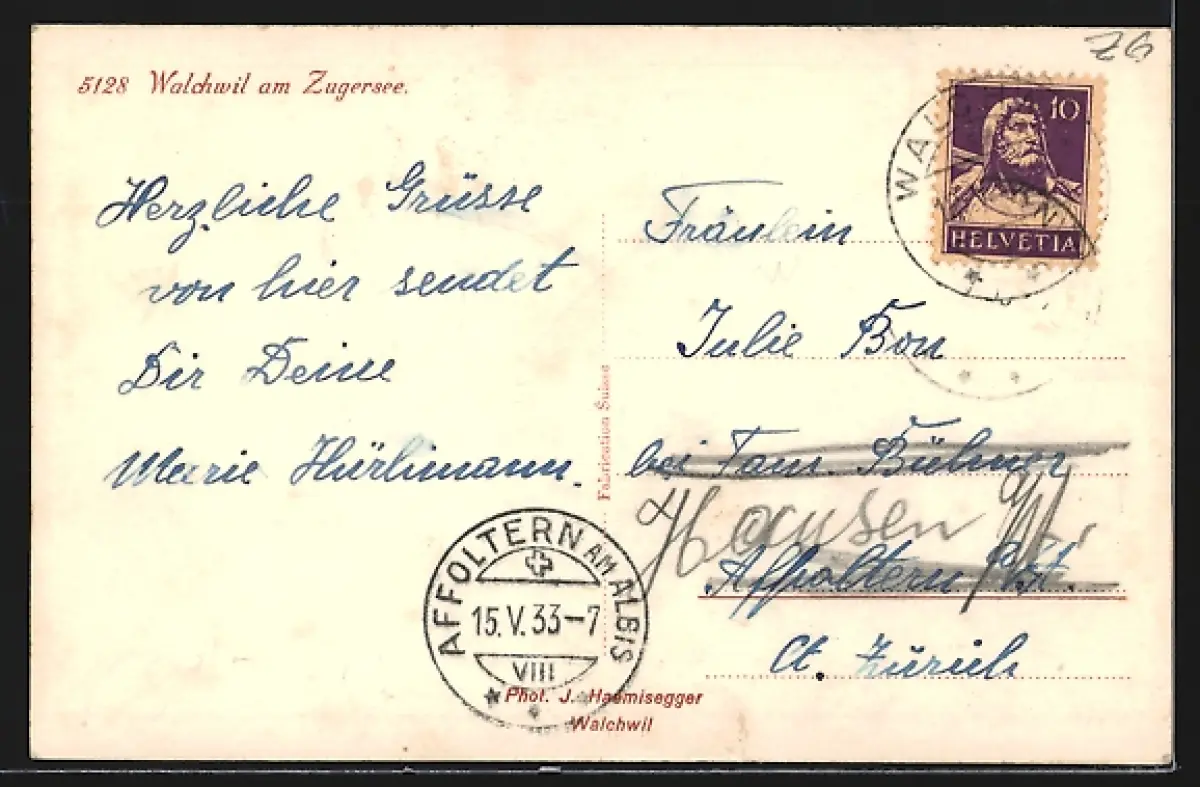 5128 Walchwil am Zugersee.
ZG
10
HELVETIA
Herzliche Grüsse
von hier sendet
Dir Deine
Marie Hürlimann.
Fräulein
Julie Bon
bei Fam. Bühner
Hausen
Affoltern
Ct. Zürich
Fabrication Suisse
AFFOLTERN AM ALBIS
15.V.33-7
VIII
Phot. J. Haemisegger
Walchwil